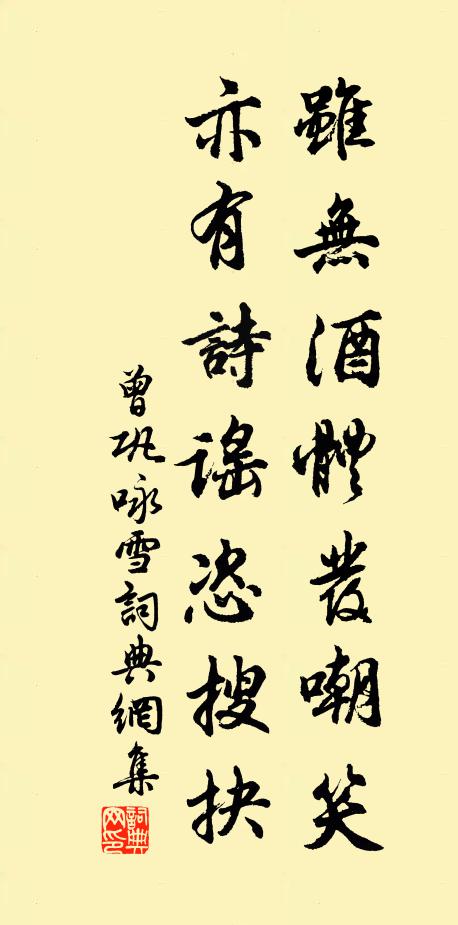 雖無酒體發嘲笑
亦有詩謠恣搜抉
曾巩咏雪詞典網集
詞典网印